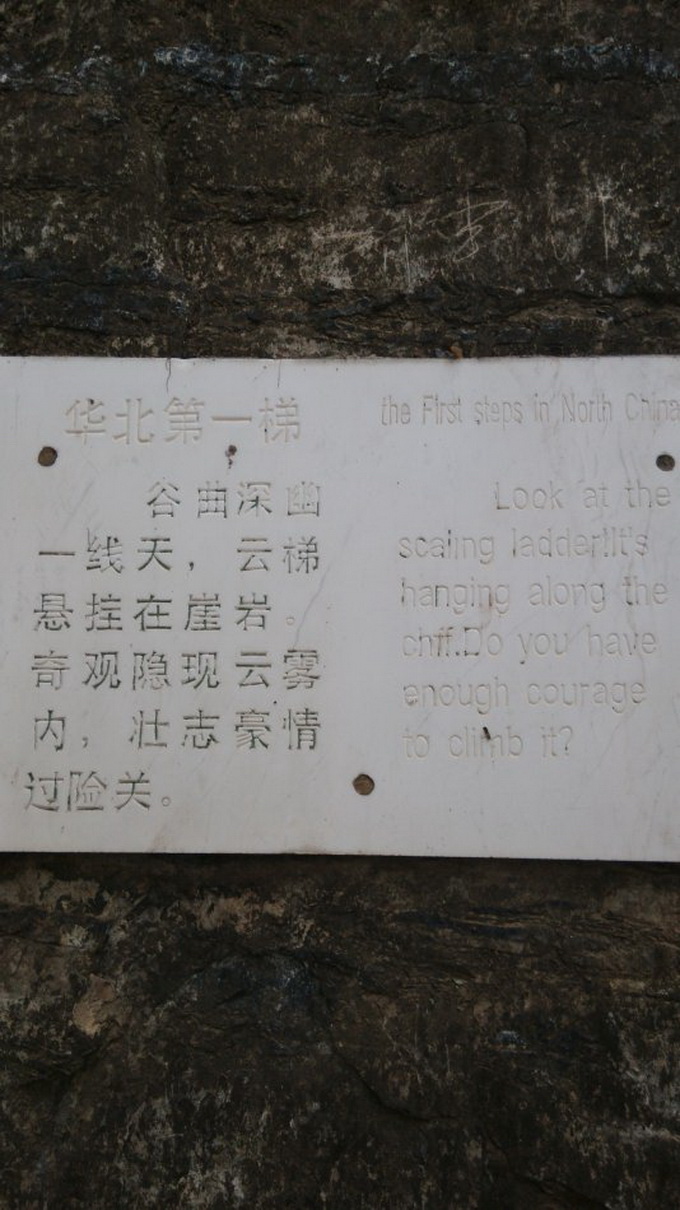 华北第一梯
谷曲深幽
一线天，云梯
悬挂在崖岩。
奇观隐现云雾
内，壮志豪情
过险关。
the First steps in North China
Look at the
scaling ladder!It's
hanging along the
cliff.Do you have
enough courage
to climb it?